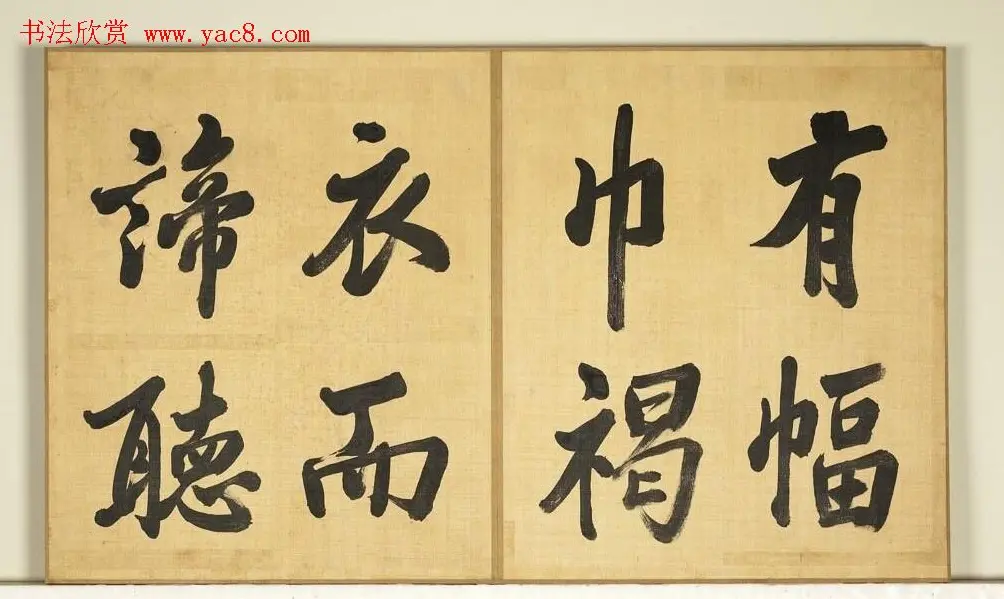 书法欣赏 www.yac8.com
有幅
巾褐
衣而
諦聽